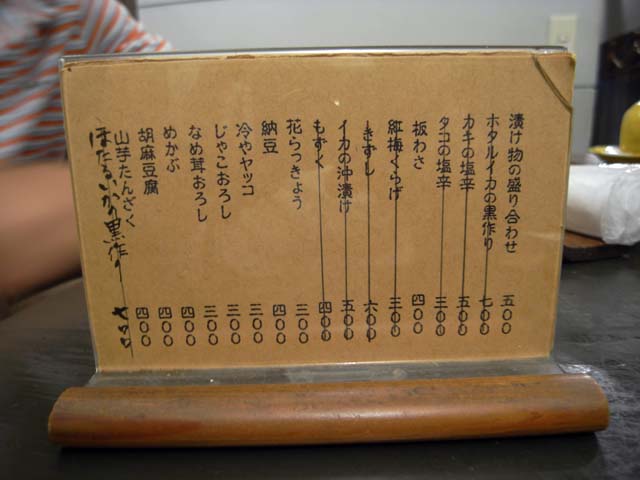 漬け物の盛り合わせ 五〇〇
ホタルイカの黒作り 七〇〇
カキの塩辛 五〇〇
タコの塩辛 三〇〇
板わさ 四〇〇
紅梅くらげ 三〇〇
きずし 六〇〇
イカの沖漬け 五〇〇
もずく 四〇〇
花らっきょう 三〇〇
納豆 四〇〇
冷ややッコ 三〇〇
じゃこおろし 三〇〇
なめ茸おろし 三〇〇
めかぶ 四〇〇
胡麻豆腐 四〇〇
山芋たんざく 四〇〇
ほたるいかの黒作り